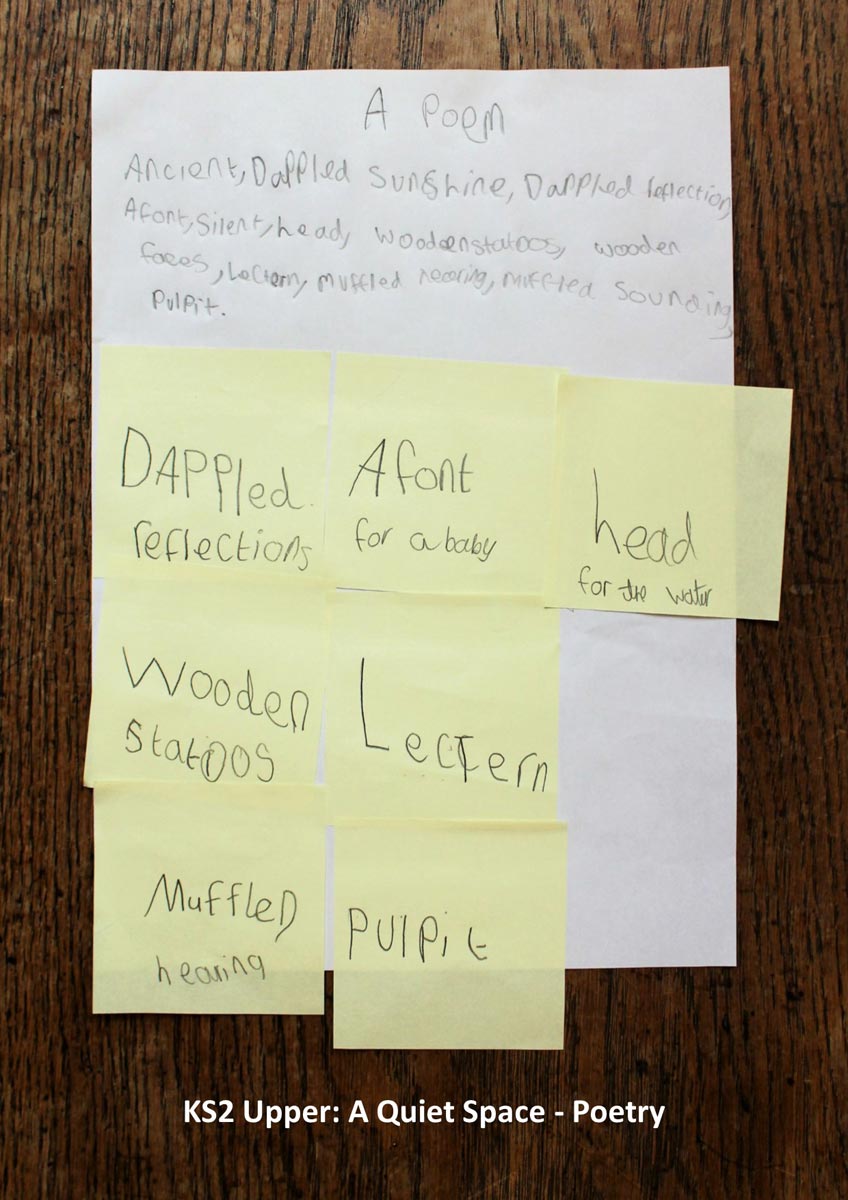 A Poem
Ancient, Dappled Sunshine, Dappled reflection,
A font, Silent, head, Wooden statoos, wooden
faces, Lectern, Muffled hearing, Muffled Sounding,
Pulpit.
DAPPled.
reflections
A font
for a baby
head
for the water
Wooden
statoos
Lectern
Muffled
hearing
PulPit
KS2 Upper: A Quiet Space - Poetry